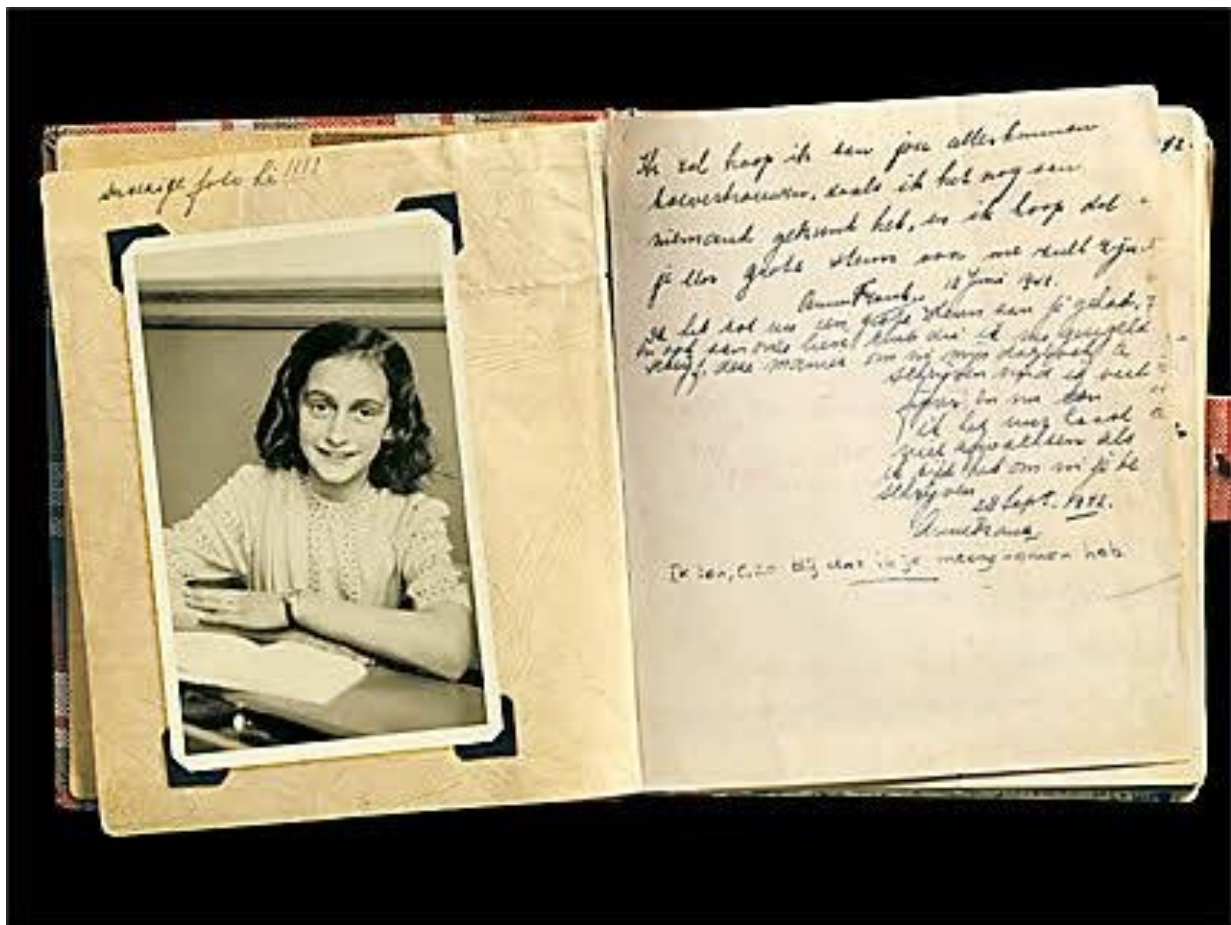 foto hè!!!!
Ik zal hoop ik aan jou alles kunnen
toevertrouwen, zoals ik het nog aan
niemand gekund heb, en ik hoop dat
je een grote steun voor me zult zijn.
Anne Frank. 12 Juni 1942.
Ik heb tot nu een grote steun aan je gehad,
en ook aan onze lieve club die ik nu geregeld
schrijf, deze manier om in mijn dagboek te
schrijven vind ik veel
fijner en nu kan
ik het haast
niet afwachten als
ik tijd heb om in je te
schrijven
28 Sept. 1942.
Anne Frank
Ik ben, o, zo blij dat ik je meegenomen heb